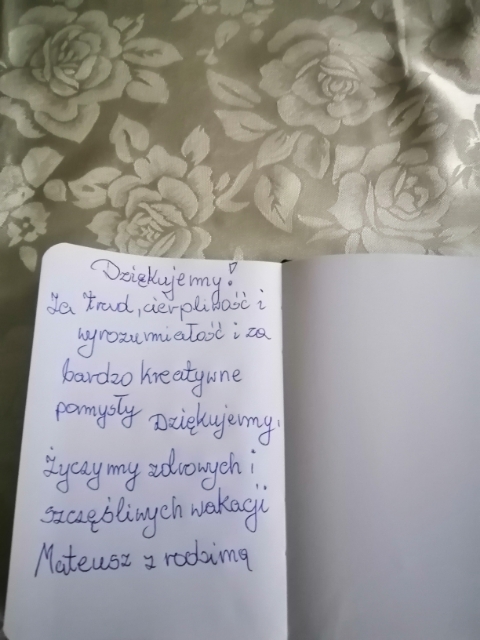 Dziękujemy!
Za trud, cierpliwość i
wyrozumiałość i za
bardzo kreatywne
pomysły Dziękujemy.
Życzymy zdrowych i
szczęśliwych wakacji
Mateusz z rodziną